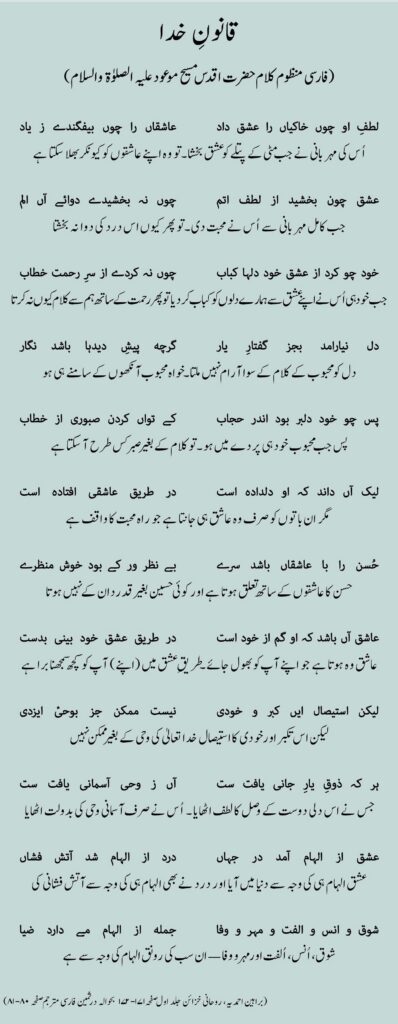 قانونِ خدا
(فارسی منظوم کلام حضرت اقدس مسیح موعود علیہ الصلوٰۃ والسلام)
لطفِ او چوں خاکیاں را عشق داد عاشقاں را چوں بیفگندے ز یاد
اُس کی مہربانی نے جب مٹی کے پتلے کو عشق بخشا۔ تو وہ اپنے عاشقوں کو کیونکر بھلا سکتا ہے
عشق چوں بخشید از لطف اتم چوں نہ بخشیدے دوائے آں الم
جب کامل مہربانی سے اُس نے محبت دی۔ تو پھر کیوں اس درد کی دوا نہ بخشتا
خود چو کرد از عشق خود دلہا کباب چوں نہ کردے از سرِ رحمت خطاب
جب خود ہی اُس نے اپنے عشق سے ہمارے دلوں کو کباب کر دیا تو پھر رحمت کے ساتھ ہم سے کلام کیوں نہ کرتا
دل نیارامد بجز گفتارِ یار گرچہ پیشِ دیدہا باشد نگار
دل کو محبوب کے کلام کے سوا آرام نہیں ملتا۔ خواہ محبوب آنکھوں کے سامنے ہی ہو
پس چو خود دلبر بود اندر حجاب کے تواں کردن صبوری از خطاب
پس جب محبوب خود ہی پردے میں ہو۔ تو کلام کے بغیر صبر کس طرح آ سکتا ہے
لیک آں داند کہ او دلدادہ است در طریق عاشقی افتادہ است
مگر ان باتوں کو صرف وہ عاشق ہی جانتا ہے جو راہ محبت کا واقف ہے
حُسن را با عاشقاں باشد سرے بے نظر ور کے بود خوش منظرے
حسن کا عاشقوں کے ساتھ تعلق ہوتا ہے اور کوئی حسین بغیر قدردان کے نہیں ہوتا
عاشق آں باشد کہ او گم از خود است در طریق عشق خود بینی بدست
عاشق وہ ہوتا ہے جو اپنے آپ کو بھول جائے۔ طریق عشق میں (اپنے) آپ کو کچھ سمجھنا برا ہے
لیکن استیصال ایں کبر و خودی نیست ممکن جز بوحیٔ ایزدی
لیکن اس تکبر اور خودی کا استیصال خدا تعالیٰ کی وحی کے بغیر ممکن نہیں
ہر کہ ذوقِ یارِ جانی یافت ست آں ز وحی آسمانی یافت ست
جس نے اس دلی دوست کے وصل کا لطف اٹھایا۔ اُس نے صرف آسمانی وحی کی بدولت اٹھایا
عشق از الہام آمد در جہاں درد از الہام شد آتش فشاں
عشق الہام ہی کی وجہ سے دنیا میں آیا اور درد نے بھی الہام ہی کی وجہ سے آتش فشانی کی
شوق و انس و الفت و مہر و وفا جملہ از الہام مے دارد ضیا
شوق، اُنس، اُلفت اور مہر و وفا — ان سب کی رونق الہام کی وجہ سے ہے
(براہین احمدیہ، روحانی خزائن جلد اول صفحہ ۱۷۱-۱۷۲ بحوالہ درثمین فارسی مترجم صفحہ ۸۰-۸۱)